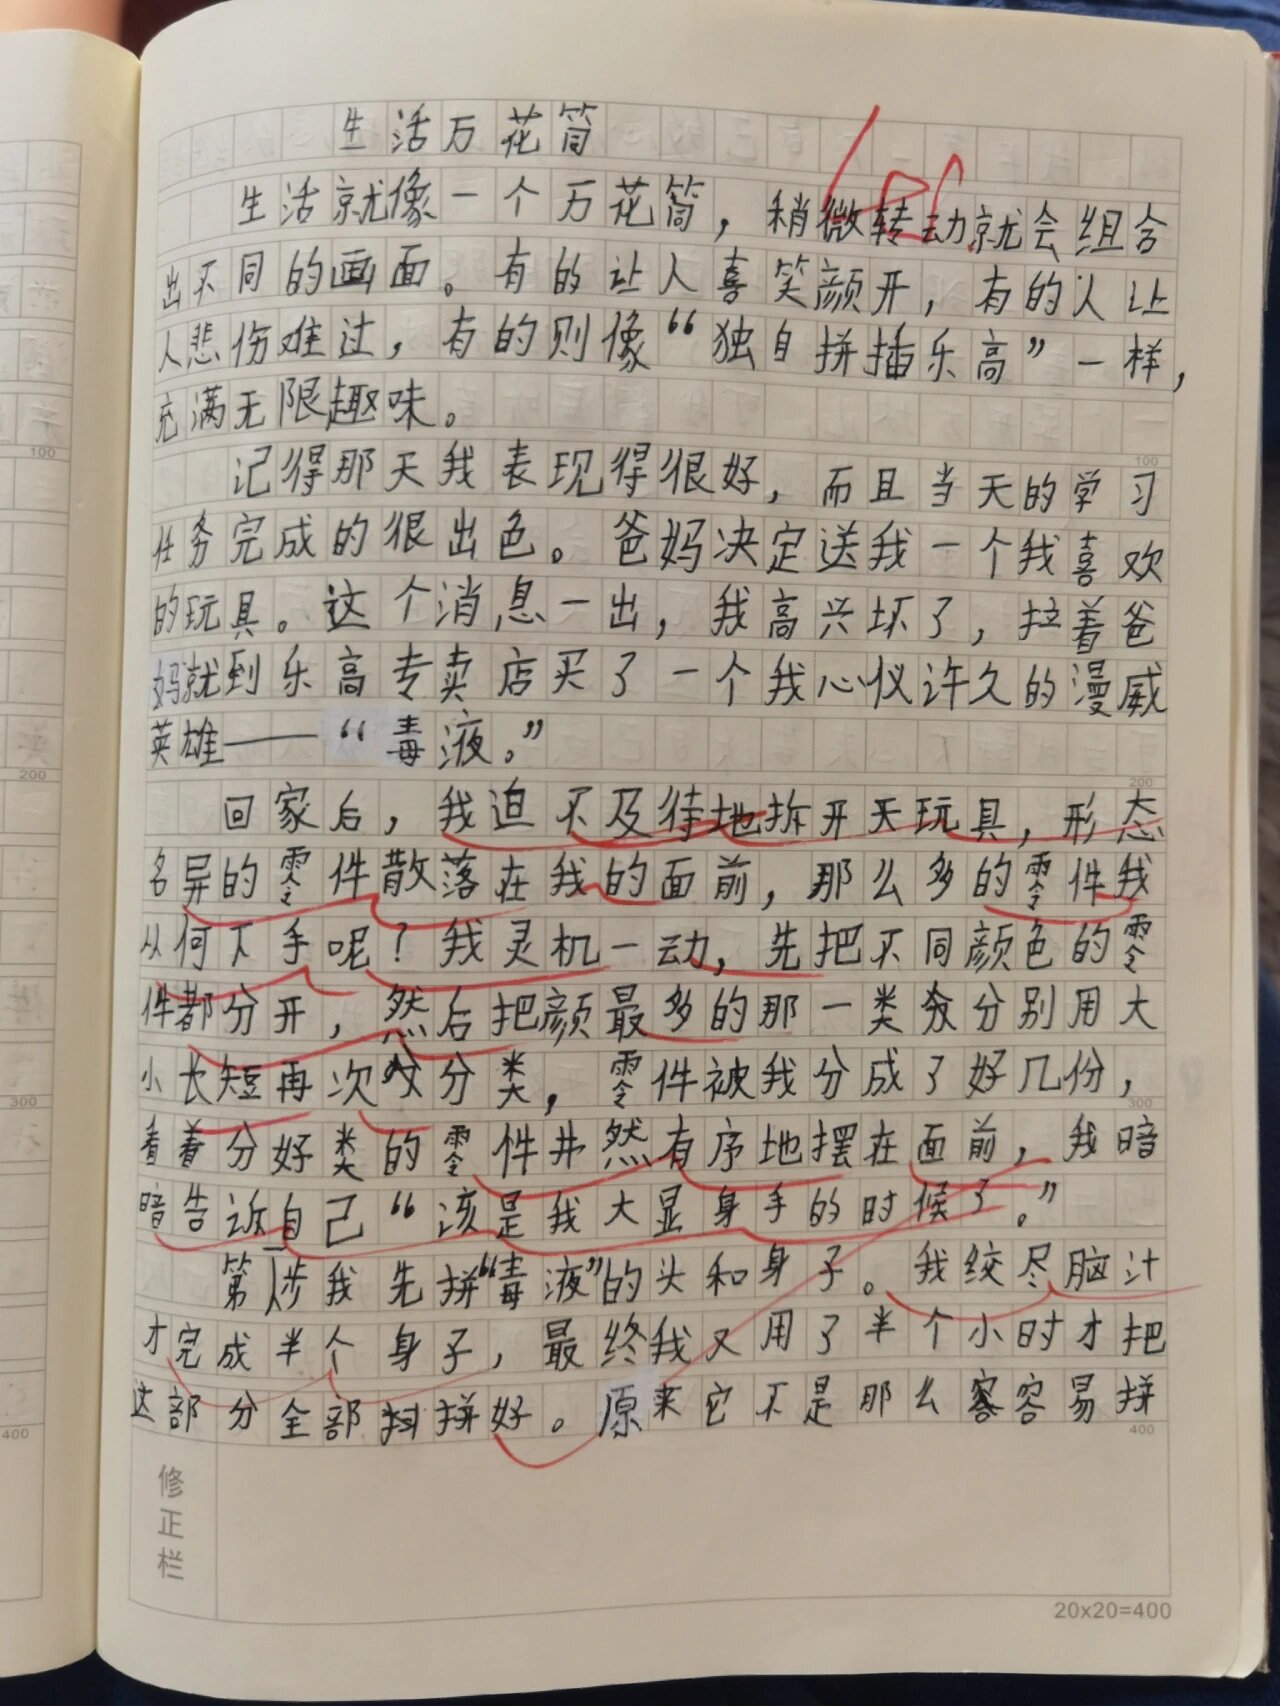 生活万花筒
生活就像一个万花筒，稍微转动就会组合
出不同的画面。有的让人喜笑颜开，有的人让
人悲伤难过，有的则像“独自拼插乐高”一样，
充满无限趣味。
100
记得那天我表现得很好，而且当天的学习
任务完成的很出色。爸妈决定送我一个我喜欢
的玩具。这个消息一出，我高兴坏了，拉着爸
妈就到乐高专卖店买了一个我心仪许久的漫威
英雄——“毒液。”
200
回家后，我迫不及待地拆开天玩具，形态
名异的零件散落在我的面前，那么多的零件我
从何下手呢？我灵机一动，先把不同颜色的零
件都分开，然后把颜最多的那一类分别用大
小长短再次分类，零件被我分成了好几份，
300
看着分好类的零件井然有序地摆在面前，我暗
暗告诉自己“该是我大显身手的时候了。”
第一步我先拼“毒液”的头和身子。我绞尽脑汁
才完成半个身子，最终我又用了半个小时才把
这部分全部拼好。原来它不是那么容易拼
400
修正栏
20x20=400
100
200
300
400